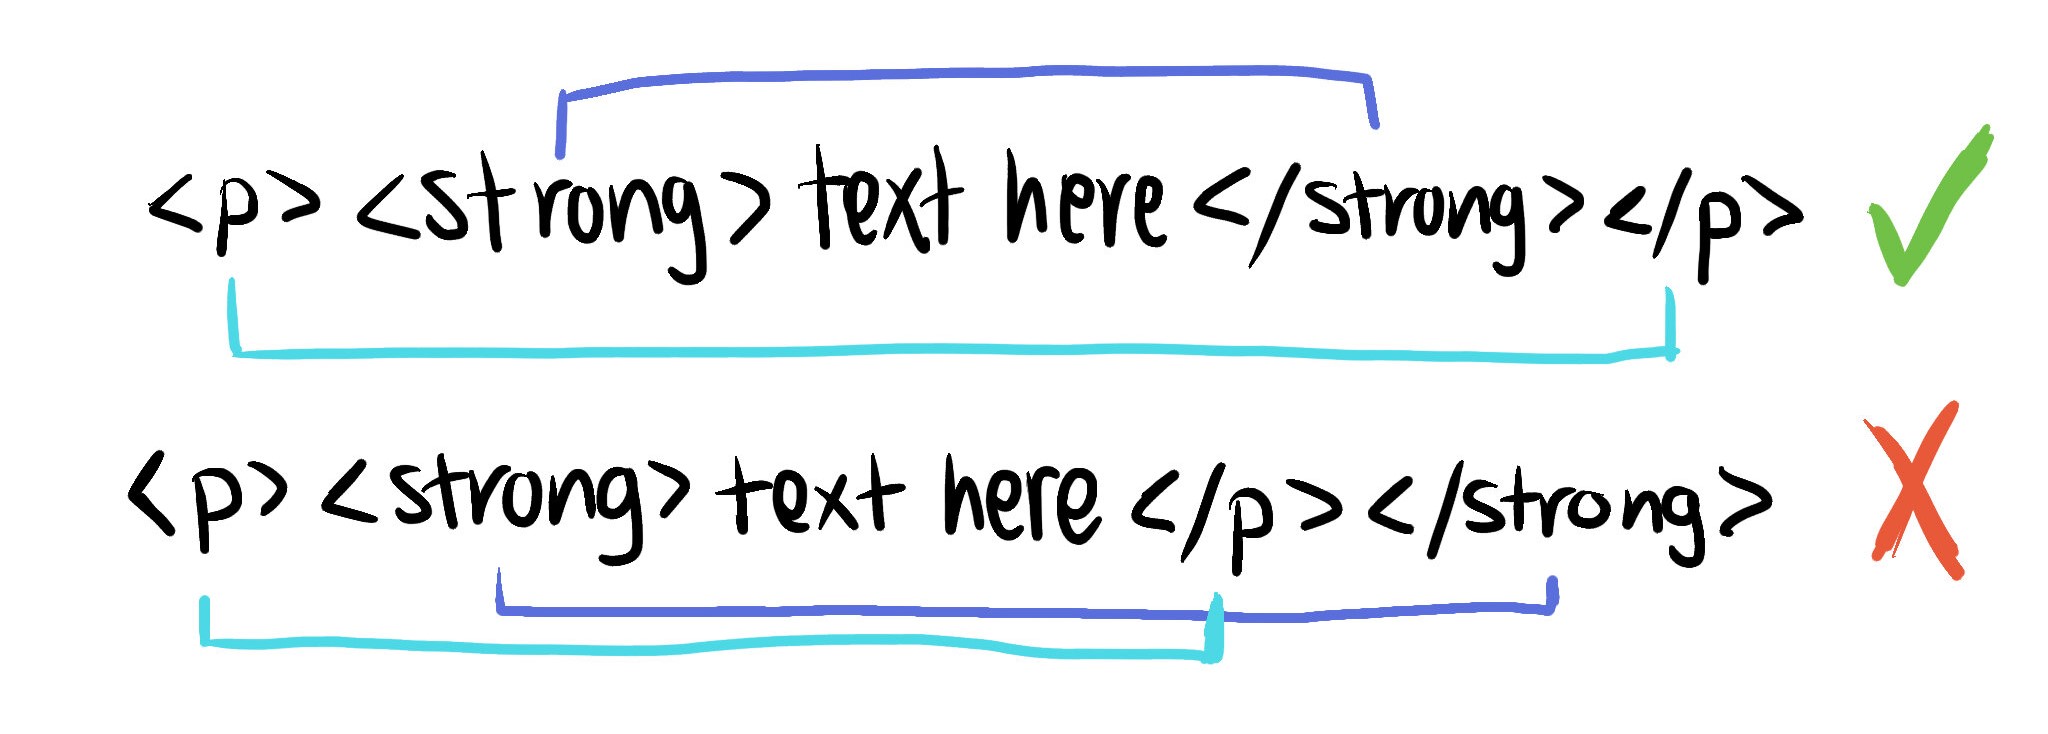 <p><strong>text here</strong></p>
<p><strong>text here</p></strong>